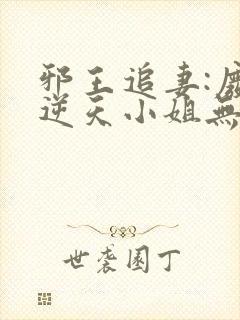 邪王追妻:
逆天小姐無
世袭園丁